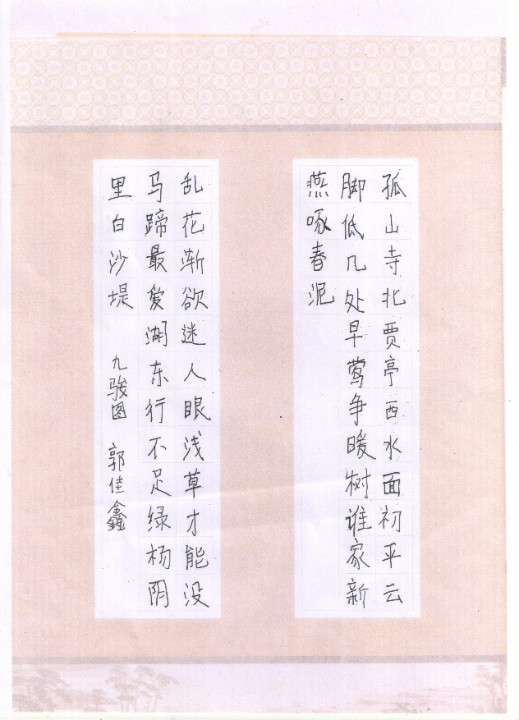 孤山寺北贾亭西水面初平云
脚低几处早莺争暖树谁家新
燕啄春泥
乱花渐欲迷人眼浅草才能没
马蹄最爱湖东行不足绿杨阴
里白沙堤 九骏图 郭佳鑫